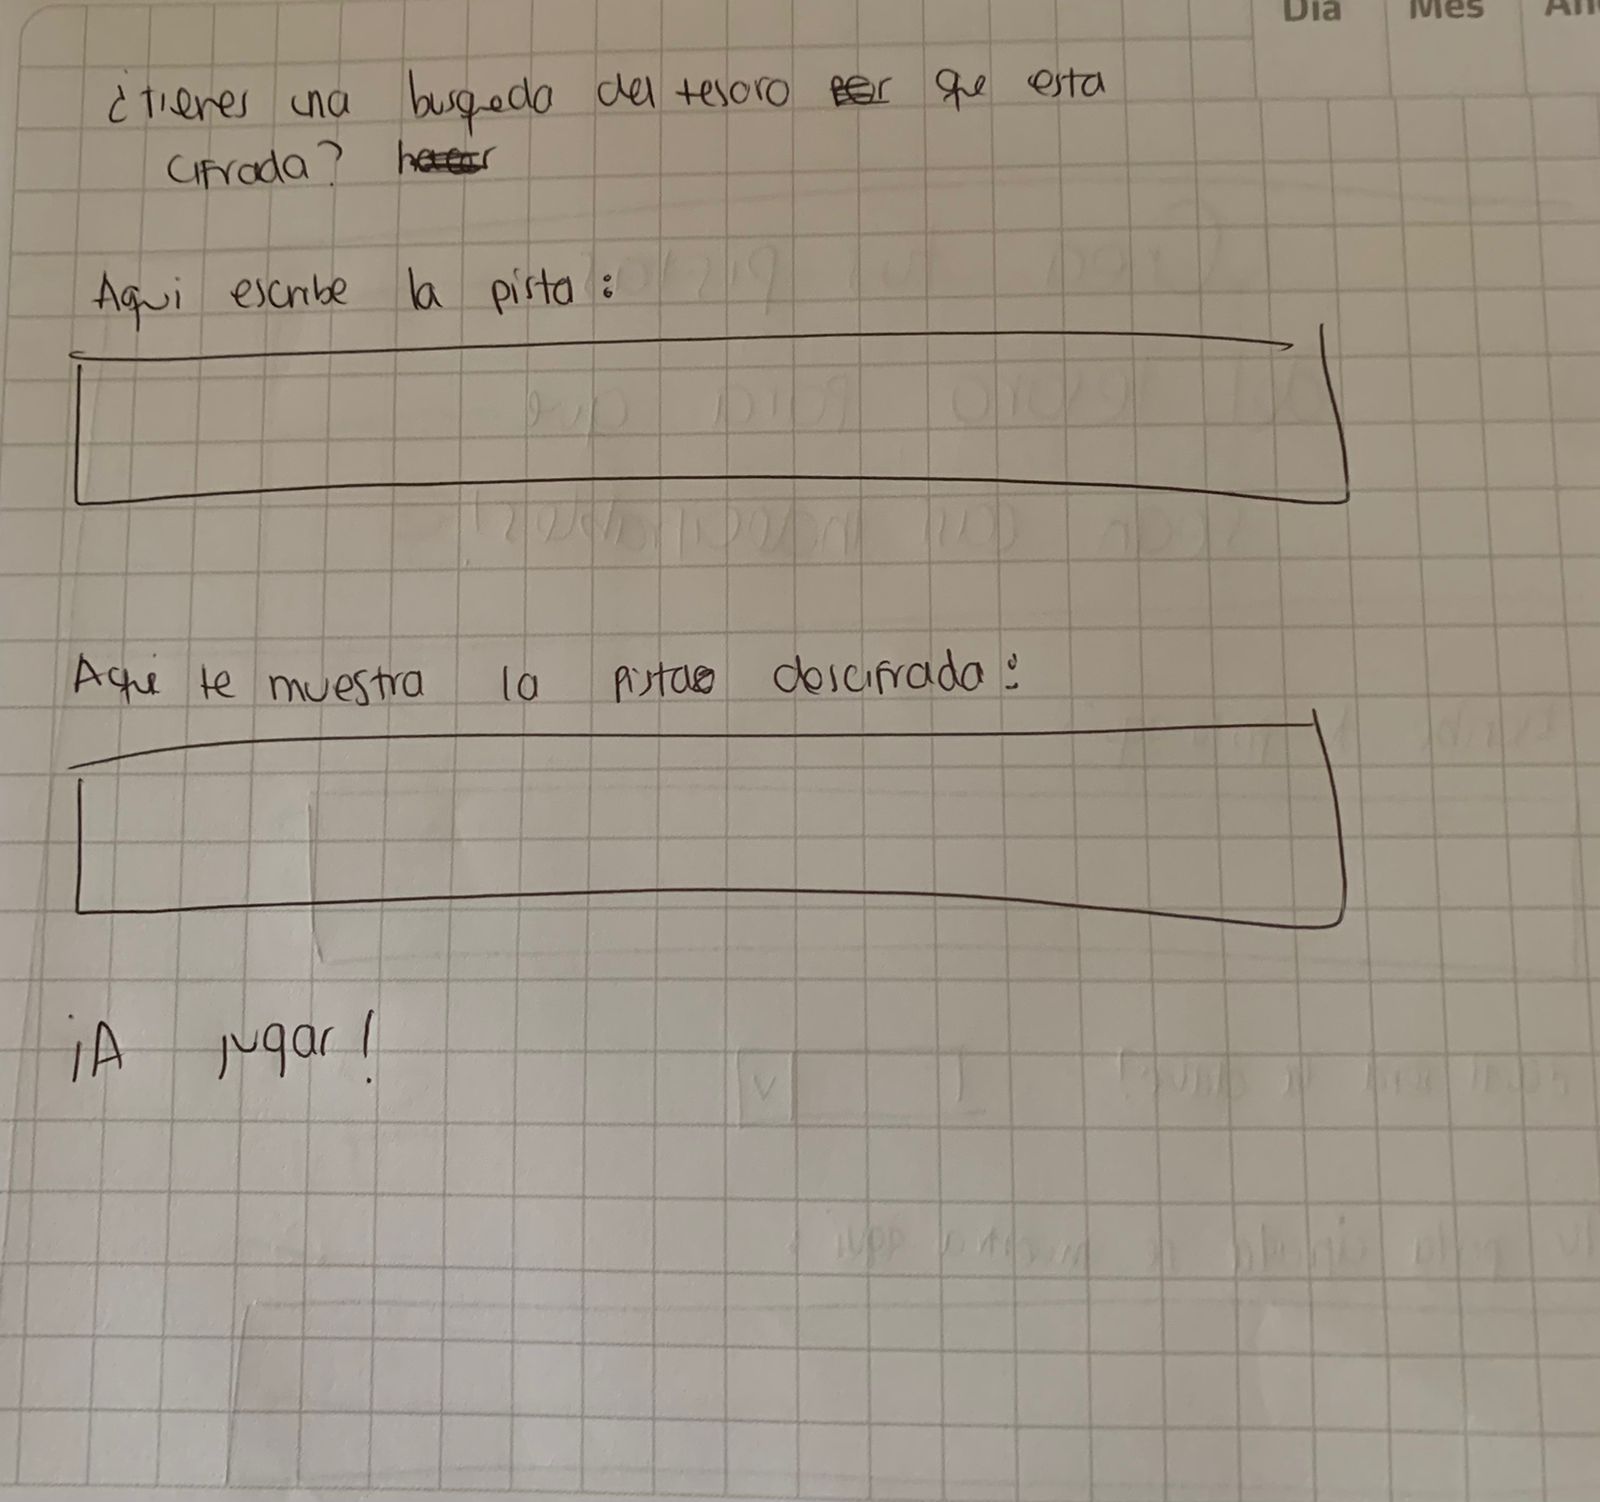 Dia Mes
¿tienes una busqueda del tesoro que esta
cifrada?
Aqui escribe la pista:
Aqui te muestra la pista descifrada:
¡A jugar!